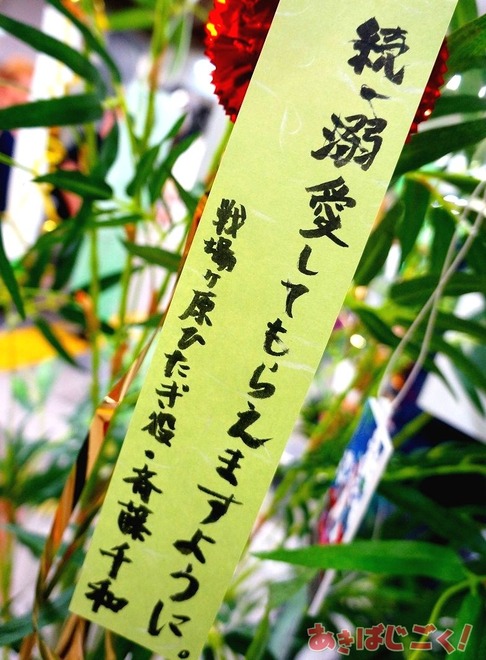 続・溺愛してもらえますように。
戦場ヶ原ひたぎ役・斉藤千和
あきばじごく!